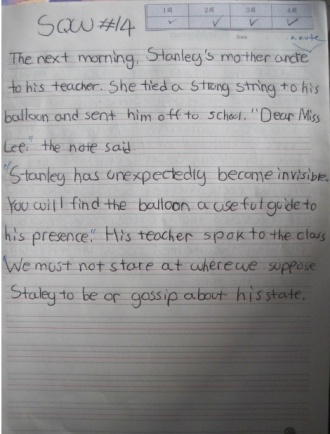 SQW #14
1회 2회 3회 4회
a note
The next morning, Stanley's mother wrote
to his teacher. She tied a strong string to his
balloon and sent him off to school. "Dear Miss
Lee." the note said
"Stanley has unexpectedly become invisible.
You will find the balloon a useful guide to
his presence." His teacher spok to the class
We must not stare at where we suppose
Staley to be or gossip about his state.